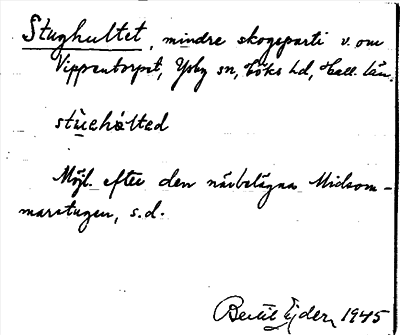 Stughultet, mindre skogsparti v. om
Vippentorpet, Ysby sn, Höks hd, Hall. län.
stùehølted
Möjl. efter den närbelägna Midsom-
marstugan, s.d.
Bertil Ejder, 1945